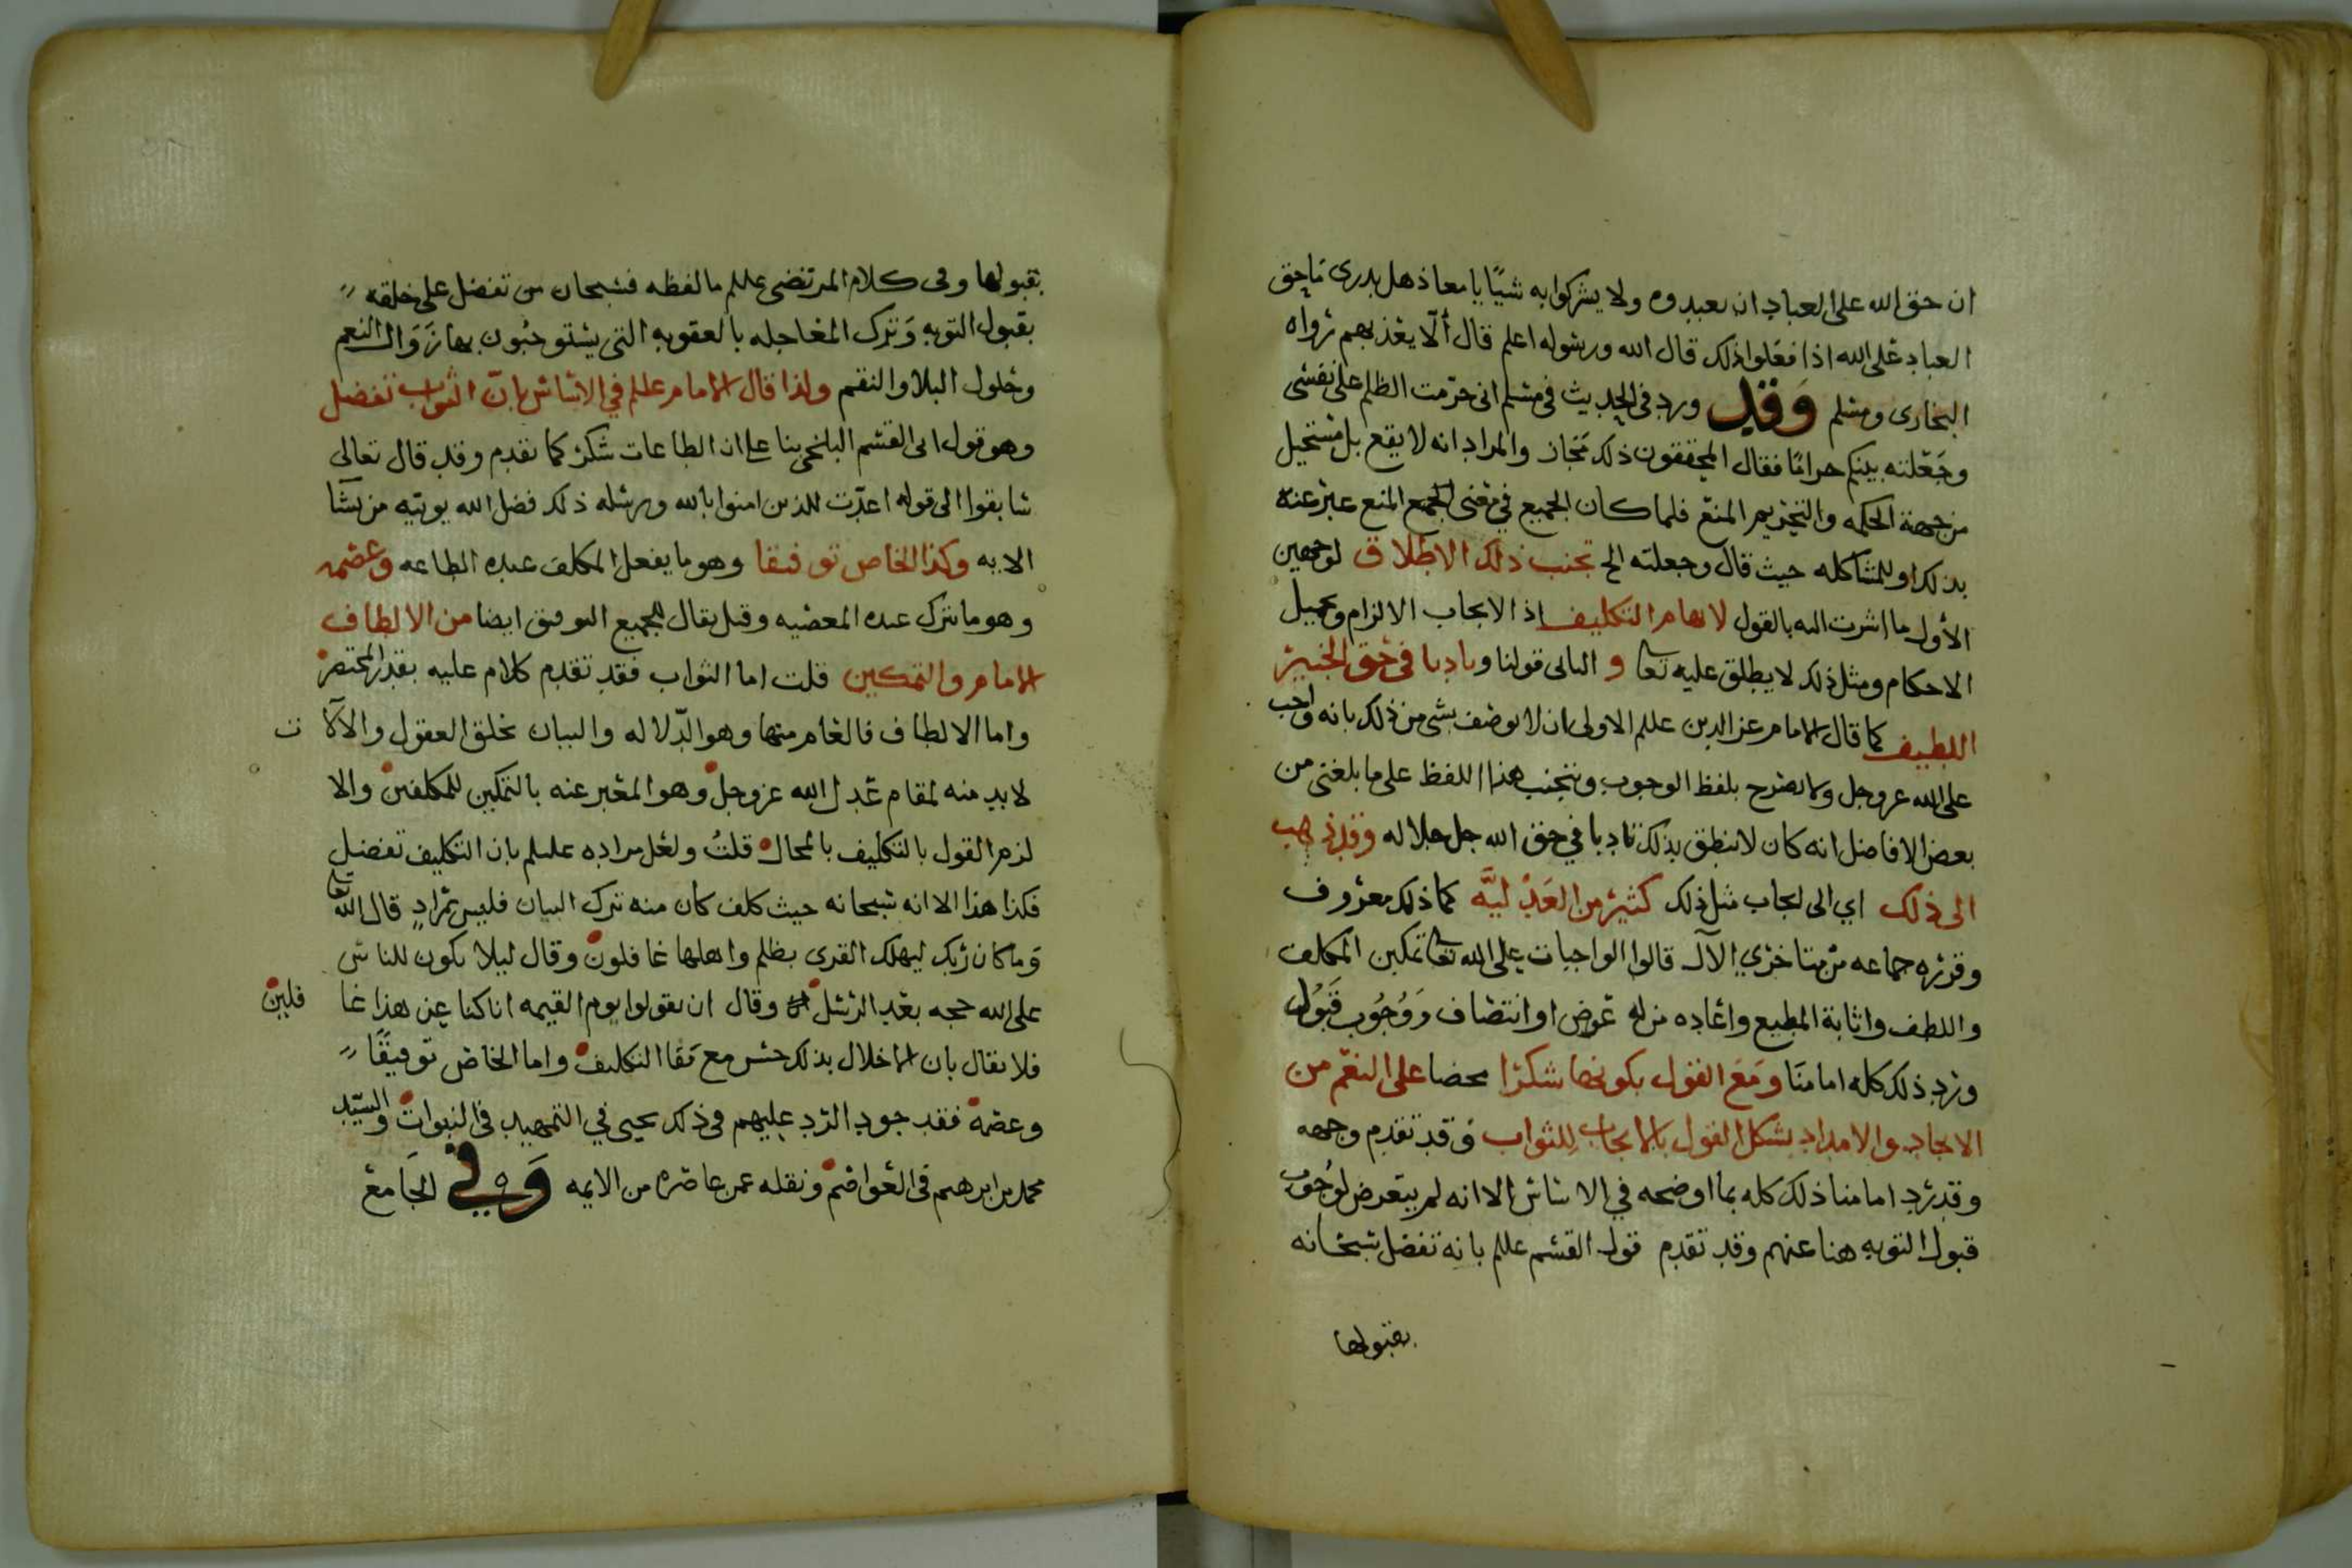 ان حق الله على العباد ان يعبدوه ولا يشركوا به شيًا يا معاذ هل يدرى ما حق
العباد على الله اذا فعلوا ذلك قال الله ورسوله اعلم قال ألّا يعذبهم رواه
البخارى ومسلم وَقد ورد في الحديث في مسلم انى حرّمت الظلم على نفسى
وجَعَلته بينكم حرامًا فقال المحققون ذلك مجاز والمراد انه لا يقع بل مستحيل
من جهة الحكمه والتحريم المنع فلما كان الجميع في معنى الجميع المنع عبر عنه
بذلك او للمشاكله حيث قال وجعلته الخ تجنب ذلك الاطلاق لوجهين
الأول ما اشرت اليه بالقول لايهام التكليف اذ الايجاب الالزام وتحميل
الاحكام ومثل ذلك لا يطلق عليه تعا و الثانى قولنا وتادبا في حق الخبير
اللطيف كما قال الامام عز الدين علللم الاولى ان لا يوصف بشى من ذلك بانه واجب
على الله عز وجل ولا يصرح بلفظ الوجوب ويتجنب هذا اللفظ على ما بلغنى من
بعض الافاضل انه كان لا ينطق بذلك تادبا في حق الله جل جلاله وقد ذهب
الى ذلك اي الى ايجاب مثل ذلك كثير من العَدْليَّه كما ذلك معروف
وقرره جماعه من متاخري الآل قالوا الواجبات على الله تعا تمكين المكلف
واللطف واثابة المطيع واعاده من له عوض او انتصاف وَوُجُوب قَبُول
ورد ذلك كله امامنَا ومَعَ القول بكونها شكرًا محضا على النعَم من
الايجاد والامداد يشكل القول بالايجاب لِلثواب وقد تقدم وجهه
وقد رد امامنا ذلك كله بما اوضحه في الاساس الا انه لم يتعرض لوُجُوب
قبول التوبه هنا عنهم وقد تقدم قول القسم علللم بانه تفضل سبحانه
بقبولها
بقبولها وفى كلام المرتضى علللم ما لفظه فسبحان من تفضل على خلقه
بقبول التوبه وَترك المعاجله بالعقوبه التى يستوجبُون بها زَوَال النعم
وحلول البلا والنقم ولذا قال الامام علللم في الاساس بانّ الثواب تفضل
وهو قول ابى القسم البلخى بنا على ان الطاعات شكر كما تقدم وقد قال تعالى
سابقوا الى قوله اعدّت للذين امنوا بالله ورسله ذلك فضل الله يوتيه من يشآ
الايه وكذا الخاص توفيقا وهو ما يفعل المكلف عنده الطاعه وعصمه
وهو ما يترك عنده المعصيه وقيل يقال للجميع التوفيق ايضا من الالطاف
الامام والتمكين قلت اما الثواب فقد تقدم كلام عليه بقدر المختصر
واما الالطاف فالعام منها وهو الدّلاله والبيان بخلق العقول والآلات
لا بد منه لمقام عَدل الله عز وجل وهو المعبر عنه بالتمكين للمكلفين والا
لزم القول بالتكليف بالمحال قلتُ ولعل مراده علللم بان التكليف تفضل
فكذا هذا الا انه سبحانه حيث كلف كان منه ترك البيان فليس بمرادٍ قال الله تعلى
وَما كان ربك ليهلك القرى بظلم واهلها غافلون وقال ليلا يكون للناس
على الله حجه بعد الرسل وقال ان يقولوا يوم القيمه انا كنا عن هذا غافلين
فلا يقال بان الاخلال بذلك حسن مع بَقا التكليف واما الخاص توفيقًا
وعصمة فقد جود الرد عليهم في ذلك يحيى في التمهيد في النبوات والسيّد
محمد بن ابرهيم في العواصم ونقله عمن عاصره من الايمه وَفي الجَامع